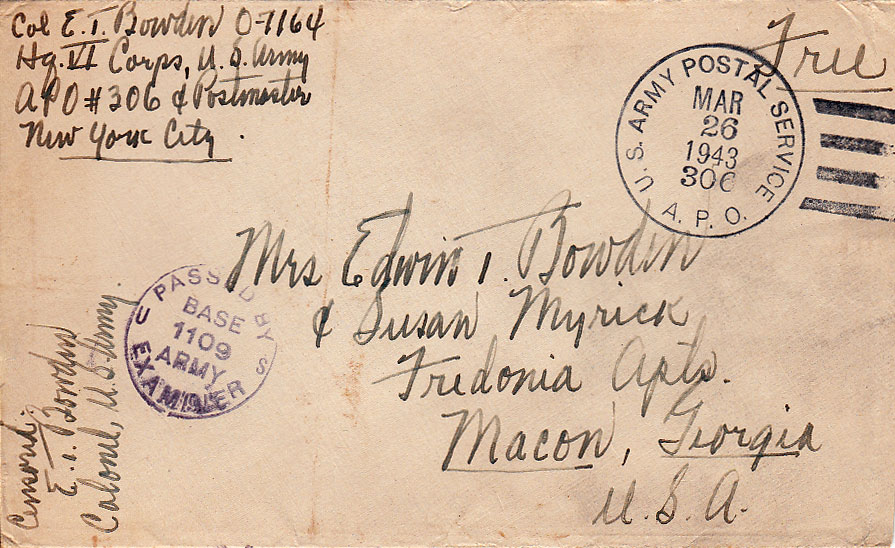 Col E. T. Bowden O-7164
Hq. VI Corps, U. S. Army
APO #306 % Postmaster
New York City.
Free
U. S. ARMY POSTAL SERVICE
MAR
26
1943
306
A. P. O.
Mrs Edwin T. Bowden
% Susan Myrick
Fredonia Apts.
Macon, Georgia
U. S. A.
PASSED BY
BASE
1109
ARMY
EXAMINER
U S
Censored:
E. T. Bowden
Colonel, U. S. Army.